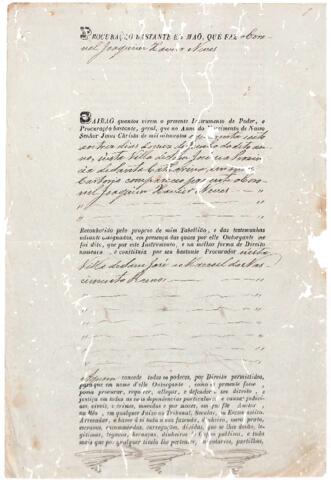 PROCURAÇÃO BASTANTE EM MAÕ, QUE FAZ o Coro-
nel Joaquim Xavier Neves
SAIBAÕ quantos virem o presente Instrumento de Poder, e
Procuração bastante, geral, que no Anno do Nascimento de Nosso
Senhor Jesus Christo de mil oitocentos e quarenta e sete
aos tres dias do mez de do dito an-
no, nesta Villa de São José da Provin-
cia de Santa Catharina, em meu
Cartorio compareceo presente o Coro-
nel Joaquim Xavier Neves
Reconhecido pelo proprio de mim Tabellião, e das testemunhas
adiante assignadas, em presença das quaes por elle Outorgante me
foi dito, que por este Instrumento, e na melhor forma de Direito
nomeava, e constituia por seu bastante Procurador nesta
Villa de São José a Manoel do Nas-
cimento Ramos
Aquem concede todos os poderes, por Direito permittidos,
para que em nome d'elle Outorgante, como se presente fosse,
possa procurar, reger, allegar, e defender o seu direito, e
justiça em todas as suas dependencias particulares, e causas judici-
aes, civeis, e crimes, movidas e por mover, em que fôr Author,
ou Réo, em qualquer Juizo ou Tribunal, Secular, ou Ecclesiastico.
Arrecadar, e haver á si toda a sua fazenda, dinheiro, ouro, prata,
escravos, encommendas, carregações, dividas, que se lhe devão,
legitimas, legados, heranças, dinheiros de Cofres publicos, e tudo
mais que por qualquer titulo lhe pertença, inventarios, partilhas,